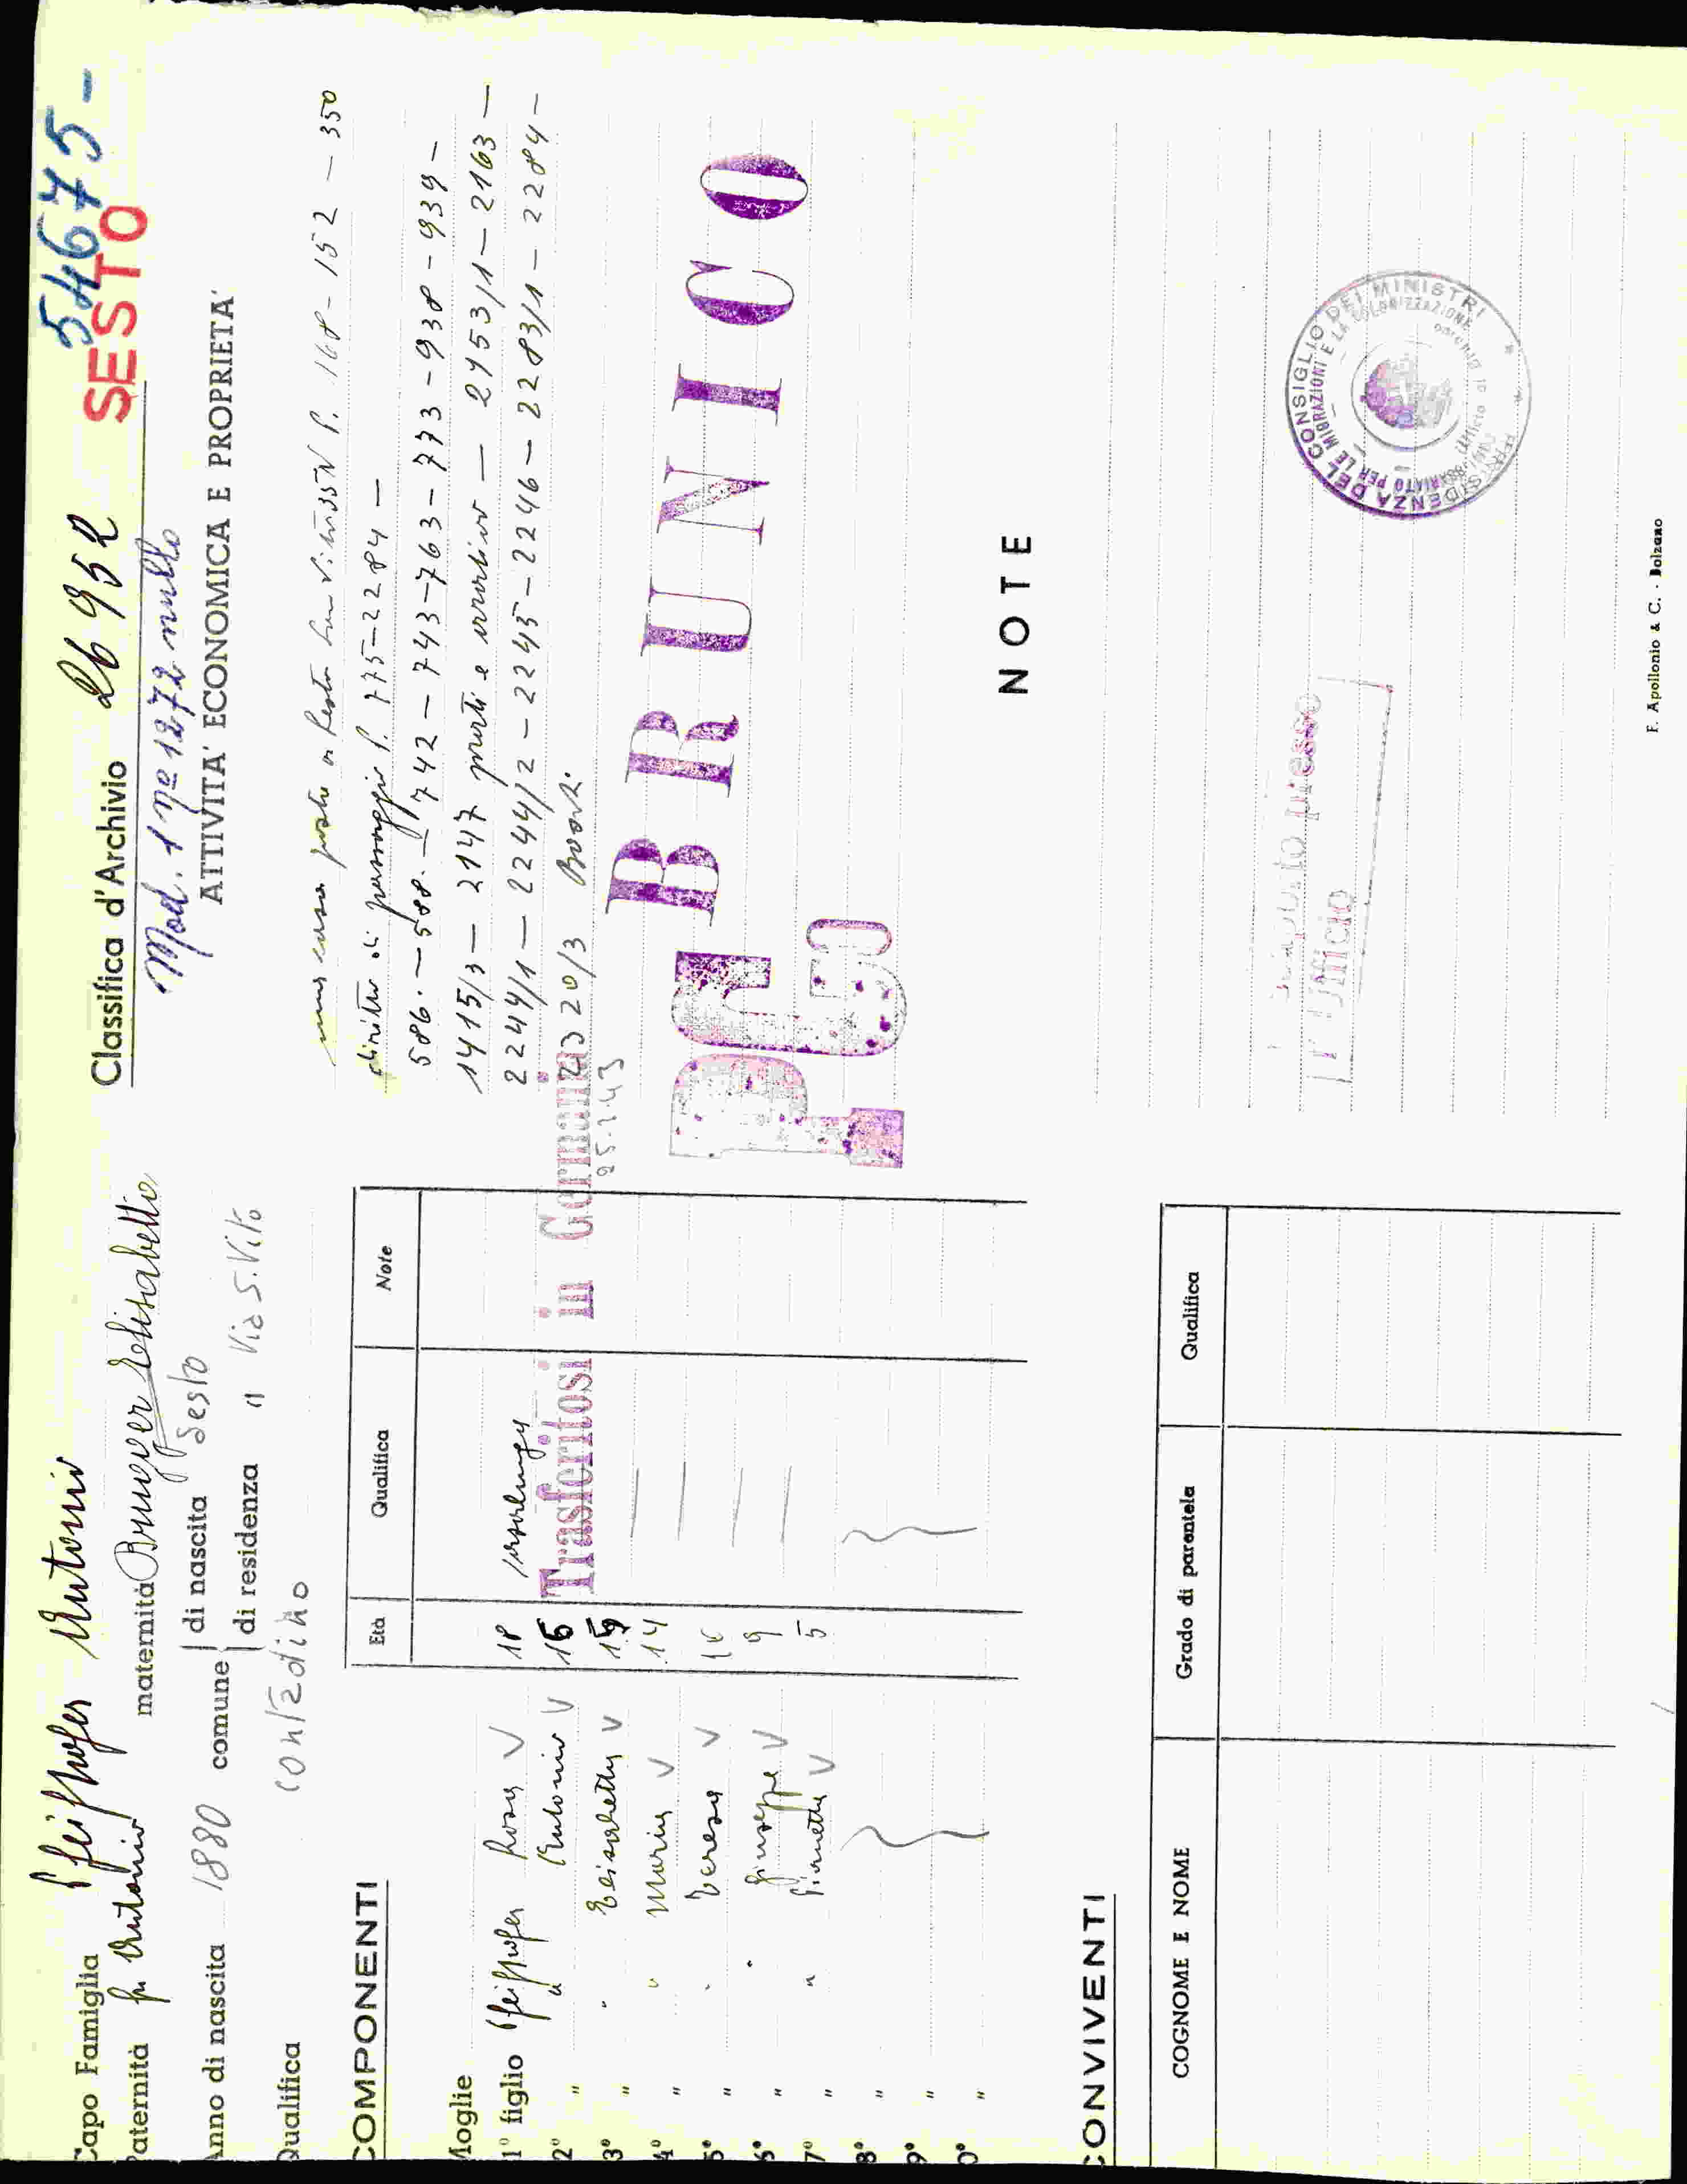 54675 -
Classifica d'Archivio 26952 SESTO
Mod. 1 nº 1272 nullo
Capo Famiglia Pfeifhofer Antonio
Paternità fu Antonio maternità Brugger Elisabetta
Anno di nascita 1880 comune di nascita Sesto
di residenza " Via S. Vito
Qualifica contadino
ATTIVITA' ECONOMICA E PROPRIETA'
una casa posta in Sesto P. 168 - 152 - 350
diritto di passaggio P. 775 - 2284 -
586. - 588. - 742 - 743 - 763 - 773 - 938 - 939 -
1415/3 - 2147 prati e - 2153/1 - 2163 -
2244/1 - 2244/2 - 2245 - 2246 - 2283/1 - 2284 -
320/3 Boschi
COMPONENTI
Età
Qualifica
Note
Moglie
1º figlio Pfeifhofer Rosa V 18 casalinga
2º " " Antonio V 16
3º " " Elisabetta V 15
4º " " Maria V 14
5º " " Teresa V
6º " " Giuseppe V 9
7º " " V 5
8º "
9º "
0º "
Trasferitosi in Germania
25.1.43
PG BRUNICO
NOTE
CONVIVENTI
COGNOME E NOME
Grado di parentela
Qualifica
presso
l'Ufficio
PRESIDENZA DEL CONSIGLIO DEI MINISTRI
COMMISSARIATO PER LE MIGRAZIONI E LA COLONIZZAZIONE
Ufficio di Bolzano
F. Apollonio & C. - Bolzano